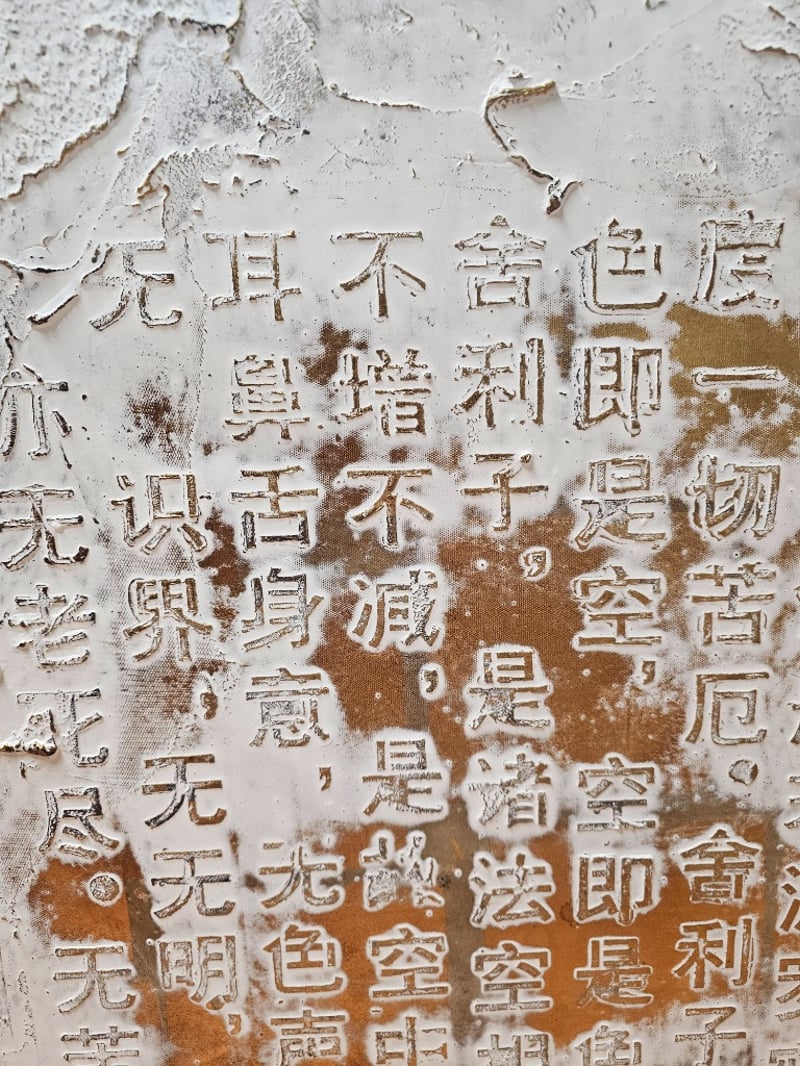 度一切苦厄。舍利子
色即是空，空即是色
舍利子，是诸法空相
不增不减，是故空中
耳鼻舌身意，无色声
无识界，无无明，
亦无老死尽。无苦